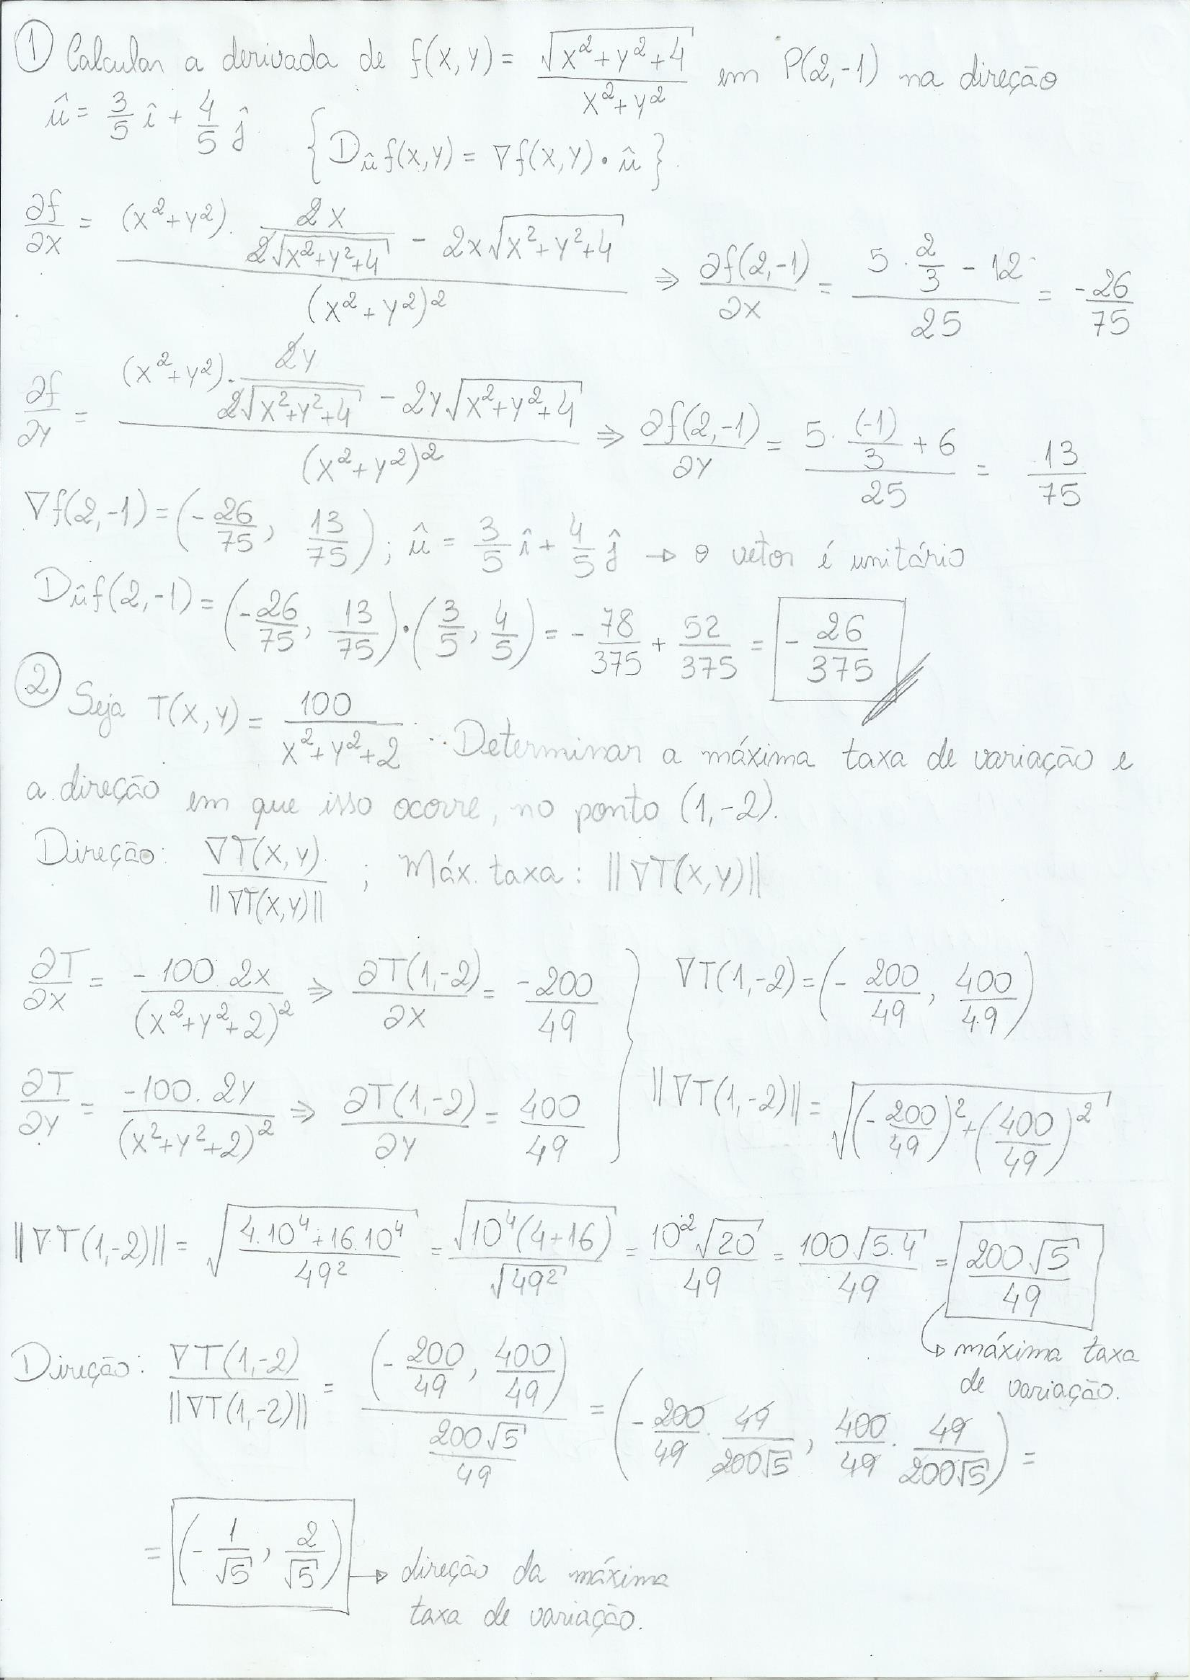 ① Calcular a derivada de f(x,y) = √(x²+y²+4) / (x²+y²) em P(2,-1) na direção
û = 3/5 î + 4/5 ĵ {D_û f(x,y) = ∇f(x,y)•û}.
∂f/∂x = ((x²+y²)·2x/(2√(x²+y²+4)) - 2x√(x²+y²+4)) / (x²+y²)² ⇒ ∂f(2,-1)/∂x = (5·2/3 - 12)/25 = -26/75
∂f/∂y = ((x²+y²)·2y/(2√(x²+y²+4)) - 2y√(x²+y²+4)) / (x²+y²)² ⇒ ∂f(2,-1)/∂y = (5·(-1)/3 + 6)/25 = 13/75
∇f(2,-1) = (-26/75, 13/75); û = 3/5 î + 4/5 ĵ → o vetor é unitário
Dûf(2,-1) = (-26/75, 13/75)•(3/5, 4/5) = -78/375 + 52/375 = -26/375
② Seja T(x,y) = 100/(x²+y²+2) ∴ Determinar a máxima taxa de variação e
a direção em que isso ocorre, no ponto (1,-2).
Direção: ∇T(x,y)/||∇T(x,y)|| ; Máx. taxa: ||∇T(x,y)||
∂T/∂x = -100.2x/(x²+y²+2)² ⇒ ∂T(1,-2)/∂x = -200/49 } ∇T(1,-2) = (-200/49, 400/49)
∂T/∂y = -100.2y/(x²+y²+2)² ⇒ ∂T(1,-2)/∂y = 400/49 ||∇T(1,-2)|| = √((-200/49)² + (400/49)²)
||∇T(1,-2)|| = √((4.10⁴+16.10⁴)/49²) = √(10⁴(4+16))/√(49²) = 10²√20/49 = 100√(5.4)/49 = 200√5/49
↳ máxima taxa
de variação.
Direção: ∇T(1,-2)/||∇T(1,-2)|| = (-200/49, 400/49)/(200√5/49) = (-200/49 · 49/(200√5), 400/49 · 49/(200√5)) =
= (-1/√5, 2/√5) → direção da máxima
taxa de variação.